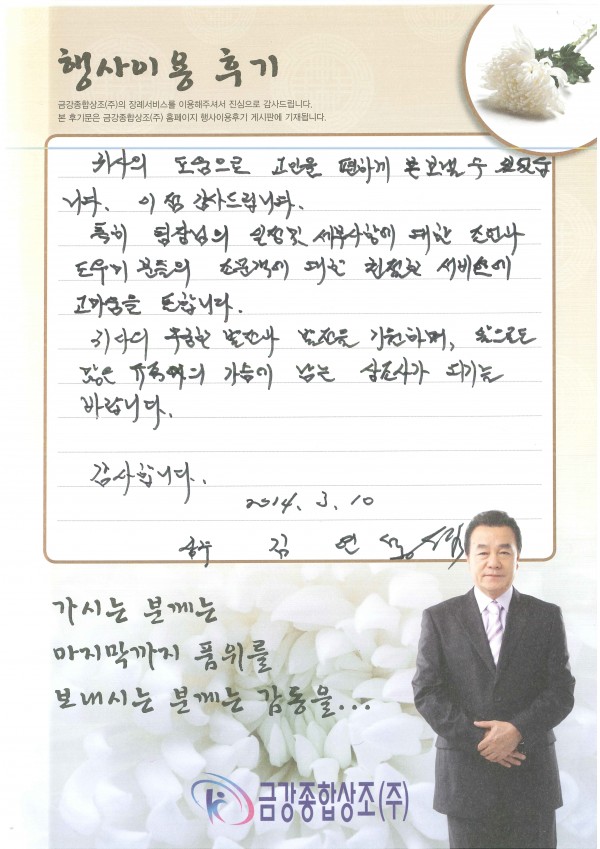 행사이용 후기
금강종합상조(주)의 장례서비스를 이용해주셔서 진심으로 감사드립니다.
본 후기문은 금강종합상조(주) 홈페이지 행사이용후기 게시판에 기재됩니다.
귀사의 도움으로 고인을 편하게 보낼 수
니다. 이 점 감사드립니다.
특히 팀장님의 일정및 세부사항에 대한 조언과
도우미 분들의 조문객에 대한 친절한 서비스에
고마움을 표합니다.
귀사의 무궁한 발전을 기원하며, 앞으로도
많은 유족의 가슴에 남는 상조사가 되기를
바랍니다.
감사합니다.
2014. 3. 10
상주 김 연
가시는 분께는
마지막까지 품위를
보내시는 분께는 감동을...
금강종합상조(주)